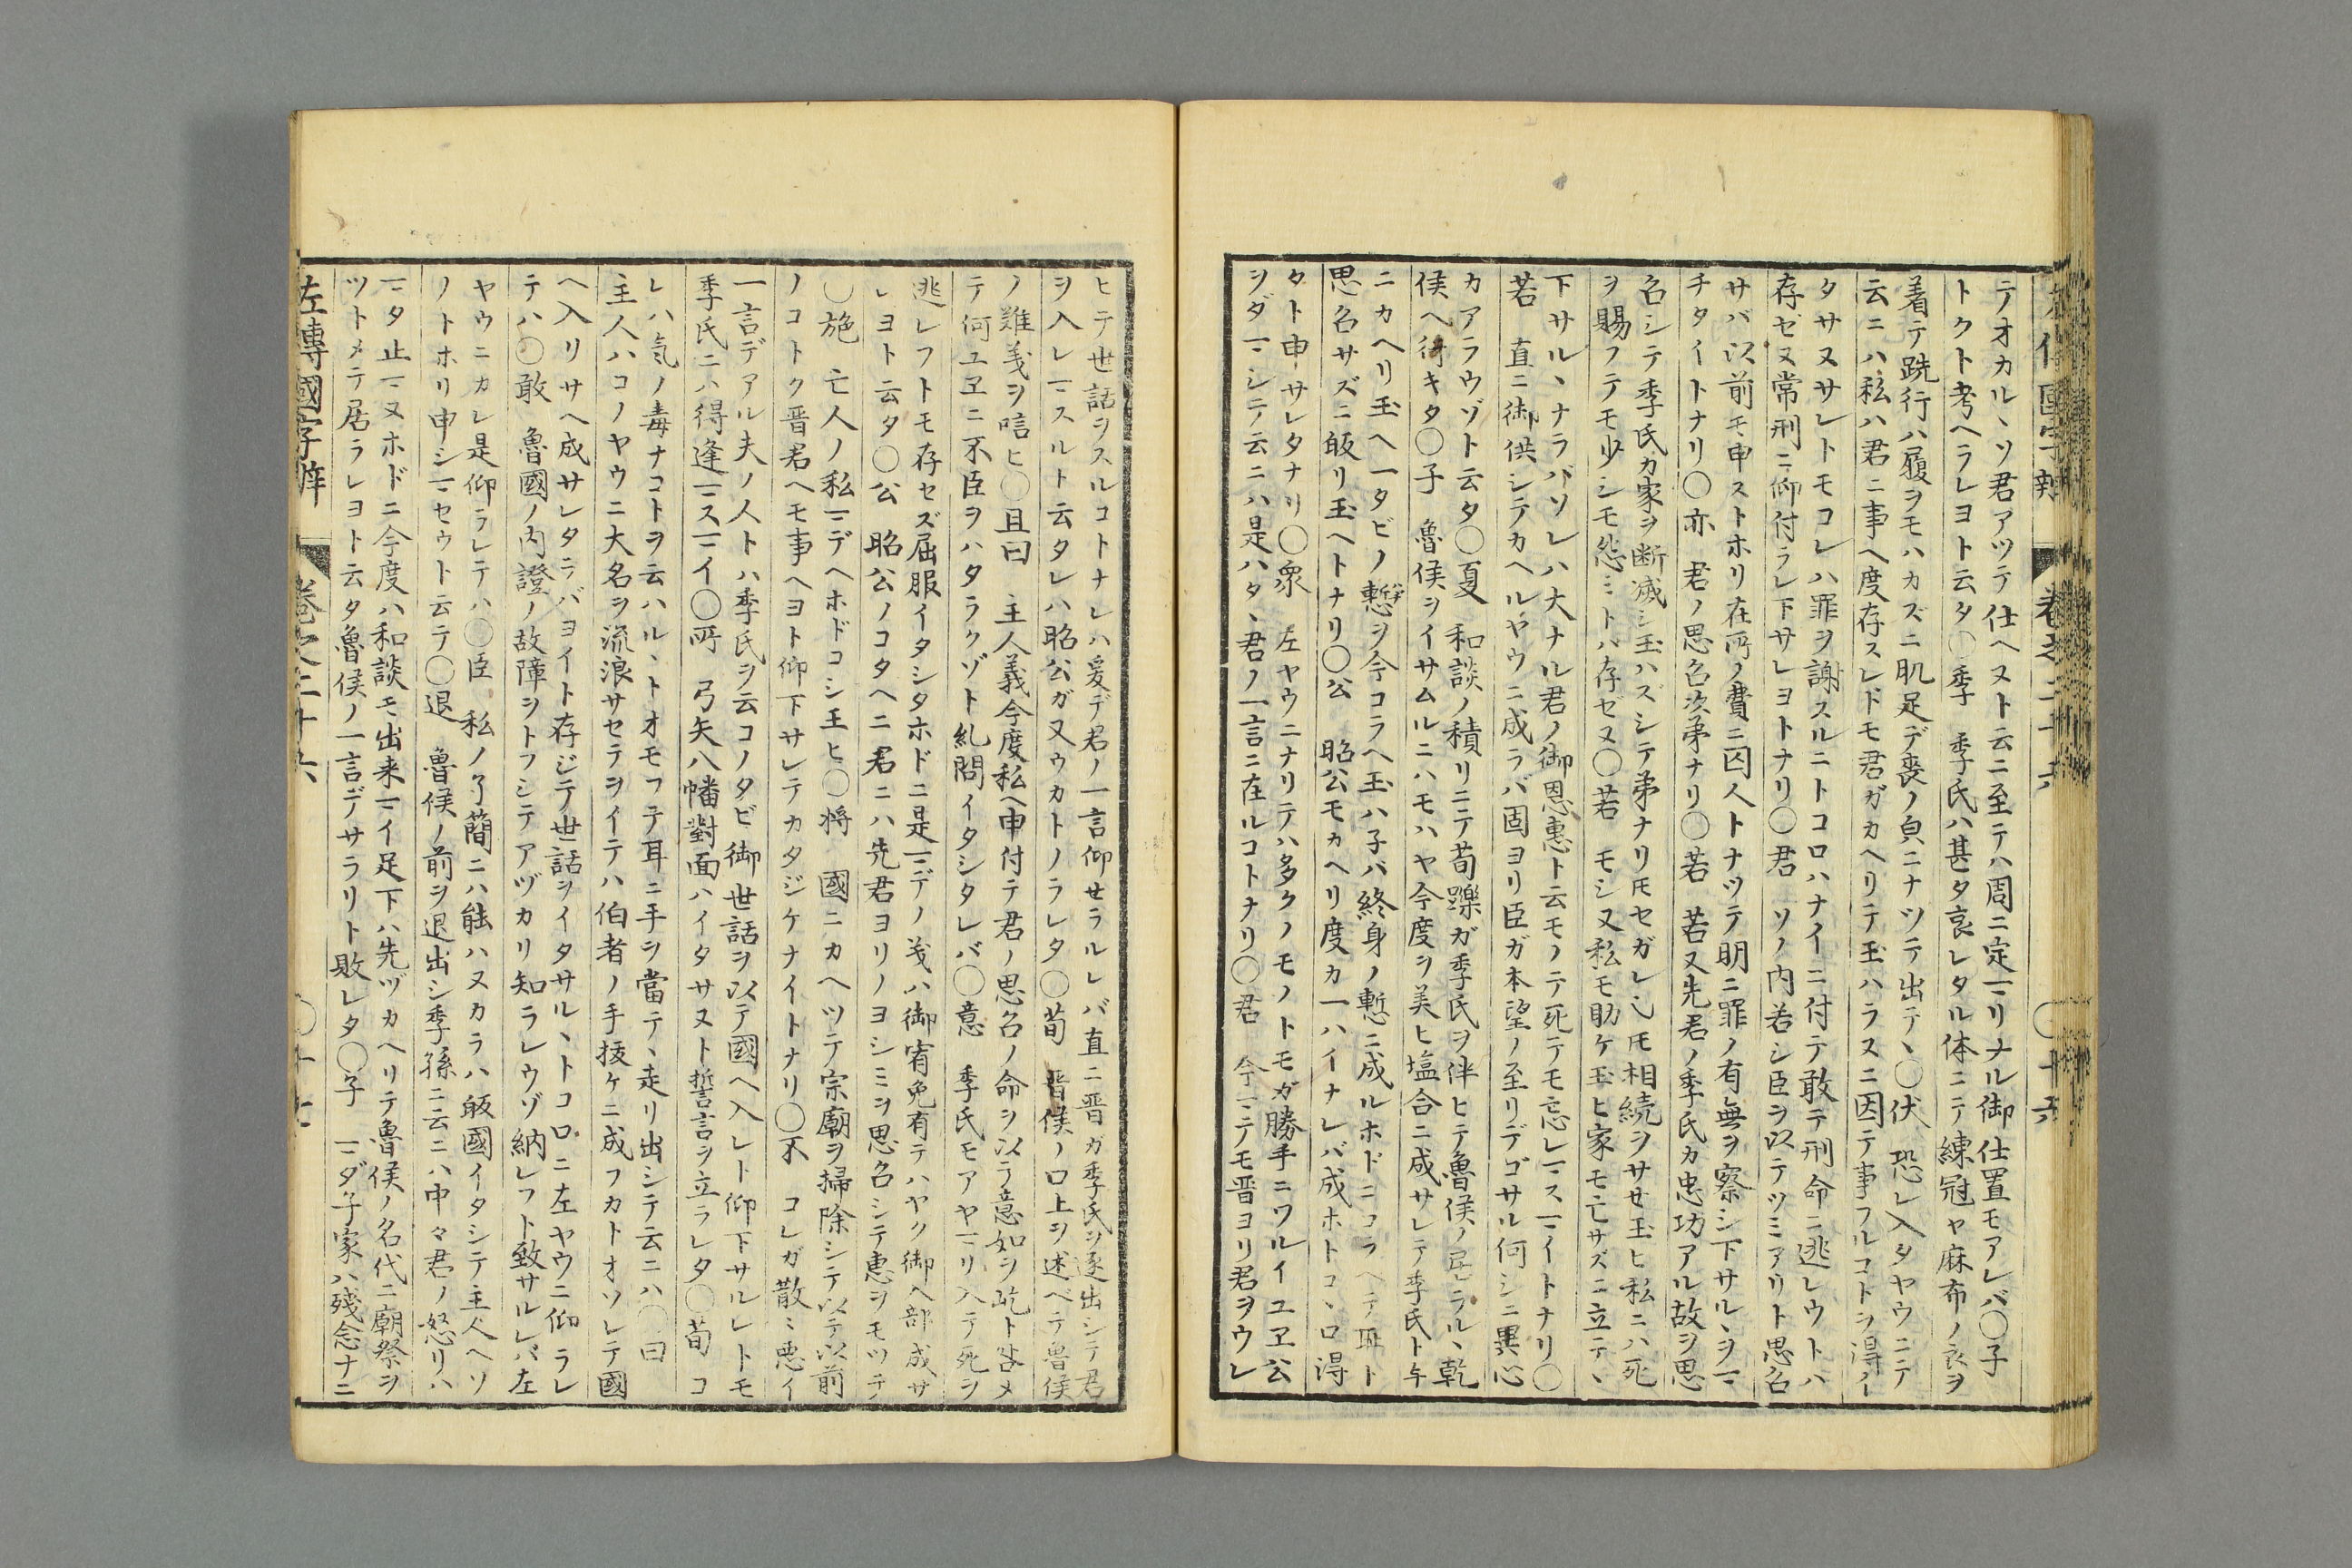 テオカルヽソ君アツテ仕ヘヌト云ニ至テハ周ニ定マリナル御仕置モアレバ〇子
トクト考ヘラレヨト云タ〇季 季氏ハ甚タ哀レタル体ニテ練冠ヤ麻布ノ衣ヲ
着テ跣行ハ履ヲモハカズニ肌足デ喪ノ皃ニナツテ出テヽ〇伏 恐レ入タヤウニテ
云ニハ私ハ君ニ事ヘ度存スレドモ君ガカヘリテ玉ハラヌニ因テ事フルコトヲ得ノ
タサヌサレトモコレハ罪ヲ謝スルニトコロハナイニ付テ敢テ刑命ニ逃レウトハ
存ゼヌ常刑ニ仰付ラレ下サレヨトナリ〇君 ソノ内若シ臣ヲ以テツミアリト思召
サバ以前モ申ストホリ在所ノ費ニ囚人トナツテ明ニ罪ノ有無ヲ察シ下サルヽヲマ
チタイトナリ〇亦 君ノ思召次第ナリ〇若 若又先君ノ季氏カ忠功アル故ヲ思
召シテ季氏カ家ヲ断滅シ玉ハズシテ弟ナリ𪜈セガレ也𪜈相続ヲサセ玉ヒ私ニハ死
ヲ賜フテモ少シモ怨ミトハ存ゼヌ〇若 モシ又私モ助ケ玉ヒ家モ亡サズニ立テヽ
下サルヽナラバソレハ大ナル君ノ御恩惠ト云モノニテ死テモ忘レマスマイトナリ〇
若 直ニ御供シテカヘルヤウニ成ラバ固ヨリ臣ガ本望ノ至リデゴサル何シニ異心
カアラウゾト云タ〇夏 和談ノ積リニテ荀躒ガ季氏ヲ伴ヒテ魯侯ノ居ラルヽ乾
侯ヘ行キタ〇子 魯侯ヲイサムルニハモハヤ今度ヲ美ヒ塩合ニ成サレテ季氏ト与
ニカヘリ玉ヘ一タビノ慙ヲ今コラヘ玉ハ子バ終身ノ慙ニ成ルホドニコラヘテ耻ト
思召サズニ皈リ玉ヘトナリ〇公 昭公モカヘリ度カ一ハイナレバ成ホトコヽロ得
タト申サレタナリ〇衆 左ヤウニナリテハ多クノモノトモガ勝手ニワルイユヱ公
ヲダマシテ云ニハ是ハタヽ君ノ一言ニ在ルコトナリ〇君 今マテモ晋ヨリ君ヲウレ
ヒテ世話ヲスルコトナレハ爰デ君ノ一言仰せラルレバ直ニ晋ガ季氏ヲ逐出シテ君
ヲ入レマスルト云タレハ昭公ガ又ウカトノラレタ〇荀 晋侯ノ口上ヲ述ベテ魯侯
ノ難義ヲ唁ヒ〇且曰 主人義今度私ヘ申付テ君ノ思召ノ命ヲ以テ意如ヲ屹ト咎メ
テ何ユヱニ不臣ヲハタラクゾト糺問イタシタレバ〇意 季氏モアヤマリ入テ死ヲ
逃レフトモ存セズ屈服イタシタホドニ是マデノ義ハ御宥免有テハヤク御入部成サ
レヨト云タ〇公 昭公ノコタヘニ君ニハ先君ヨリノヨシミヲ思召シテ惠ヲモツテ
〇施 亡人ノ私マデヘホドコシ王ヒ〇将 國ニカヘツテ宗廟ヲ掃除シテ以テ以前
ノコトク晋君ヘモ事ヘヨト仰下サレテカタジケナイトナリ〇不 コレガ散ミ悪イ
一言デアル夫ノ人トハ季氏ヲ云コノタビ御世話ヲ以テ國ヘ入レト仰下サルレトモ
季氏ニハ得逢マスマイ〇所 弓矢八幡對面ハイタサヌト誓言ヲ立ラレタ〇荀 コ
レハ気ノ毒ナコトヲ云ハルヽトオモフテ耳ニ手ヲ當テヽ走リ出シテ云ニハ〇曰
主人ハコノヤウニ大名ヲ流浪サセテヲイテハ伯者ノ手抜ケニ成フカトオソレテ國
ヘ入リサヘ成サレタラバヨイト存ジテ世話ヲイタサルヽトコロニ左ヤウニ仰ラレ
テハ〇敢 魯國ノ内證ノ故障ヲトフシテアヅカリ知ラレウゾ納レフト致サルレバ左
ヤウニカレ是仰ラレテハ〇臣 私ノ了簡ニハ能ハヌカラハ皈國イタシテ主人ヘソ
ノトホリ申シマセウト云テ〇退 魯侯ノ前ヲ退出シ季孫ニ云ニハ中々君ノ怒リハ
マタ止マヌホドニ今度ハ和談モ出来マイ足下ハ先ヅカヘリテ魯侯ノ名代ニ廟祭ヲ
ツトメテ居ラレヨト云タ魯侯ノ一言デサラリト敗レタ〇子 マダ子家ハ殘念ナニ
左傳國字辯 卷之二十六 〇十七